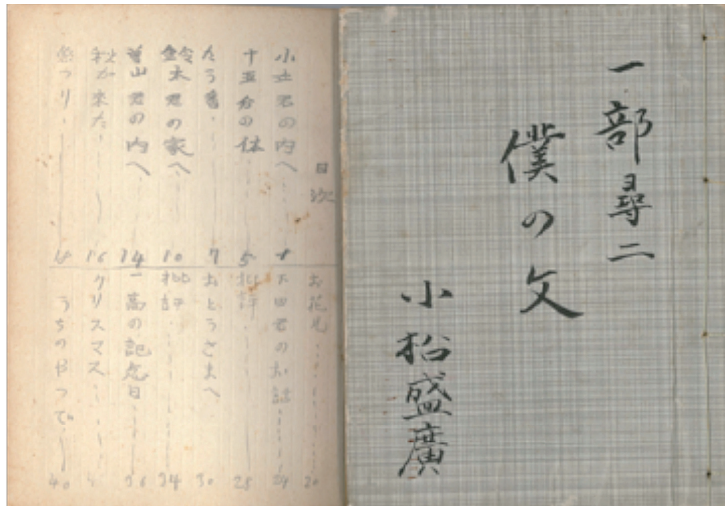 一部尋二
僕の文
小松盛廣
目次
小土君の内へ 1
十五分の体 5
たう番 7
鈴木君の家へ 10
曽山君の内へ 14
秋が来た 16
お花見 20
下田君のお話 24
批評 28
おとうさまへ 30
批評 34
一高の記念日 36
クリスマス
うちのやつで 40